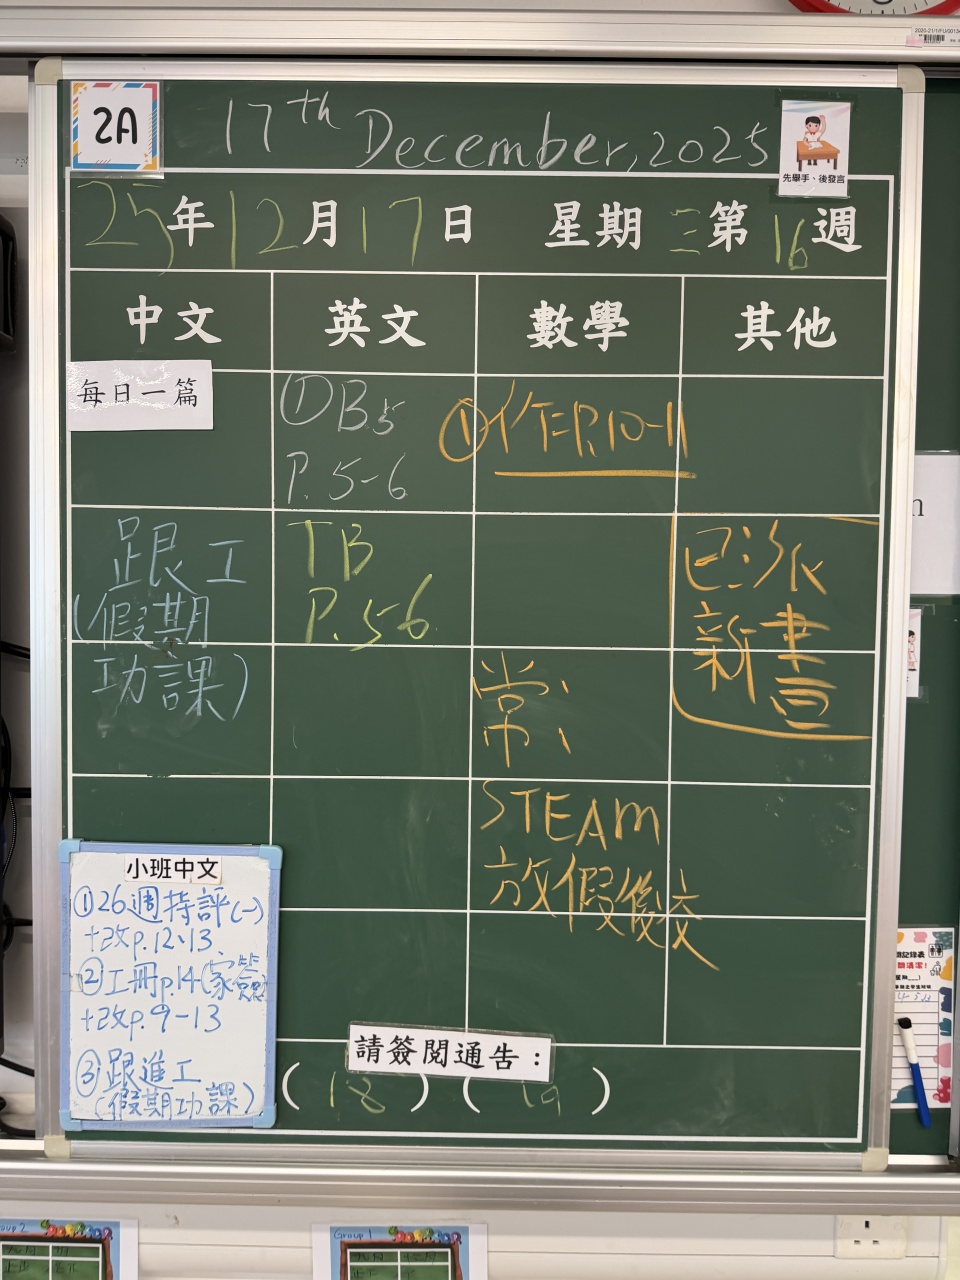 2A
17th December, 2025
先舉手、後發言
25年12月17日 星期三第16週
中文 英文 數學 其他
每日一篇
跟工
(假期
功課)
①B5
P.5-6
TB
P.5-6
①作:P.10-11
常:
STEAM
放假後交
已派
新書
小班中文
①26週持評(一)
+改p.12、13
②工冊p.14(家簽)
+改p.9-13
③跟進工
(假期功課)
請簽閱通告：
( 18 ) ( 19 )
Group 2
Group 1